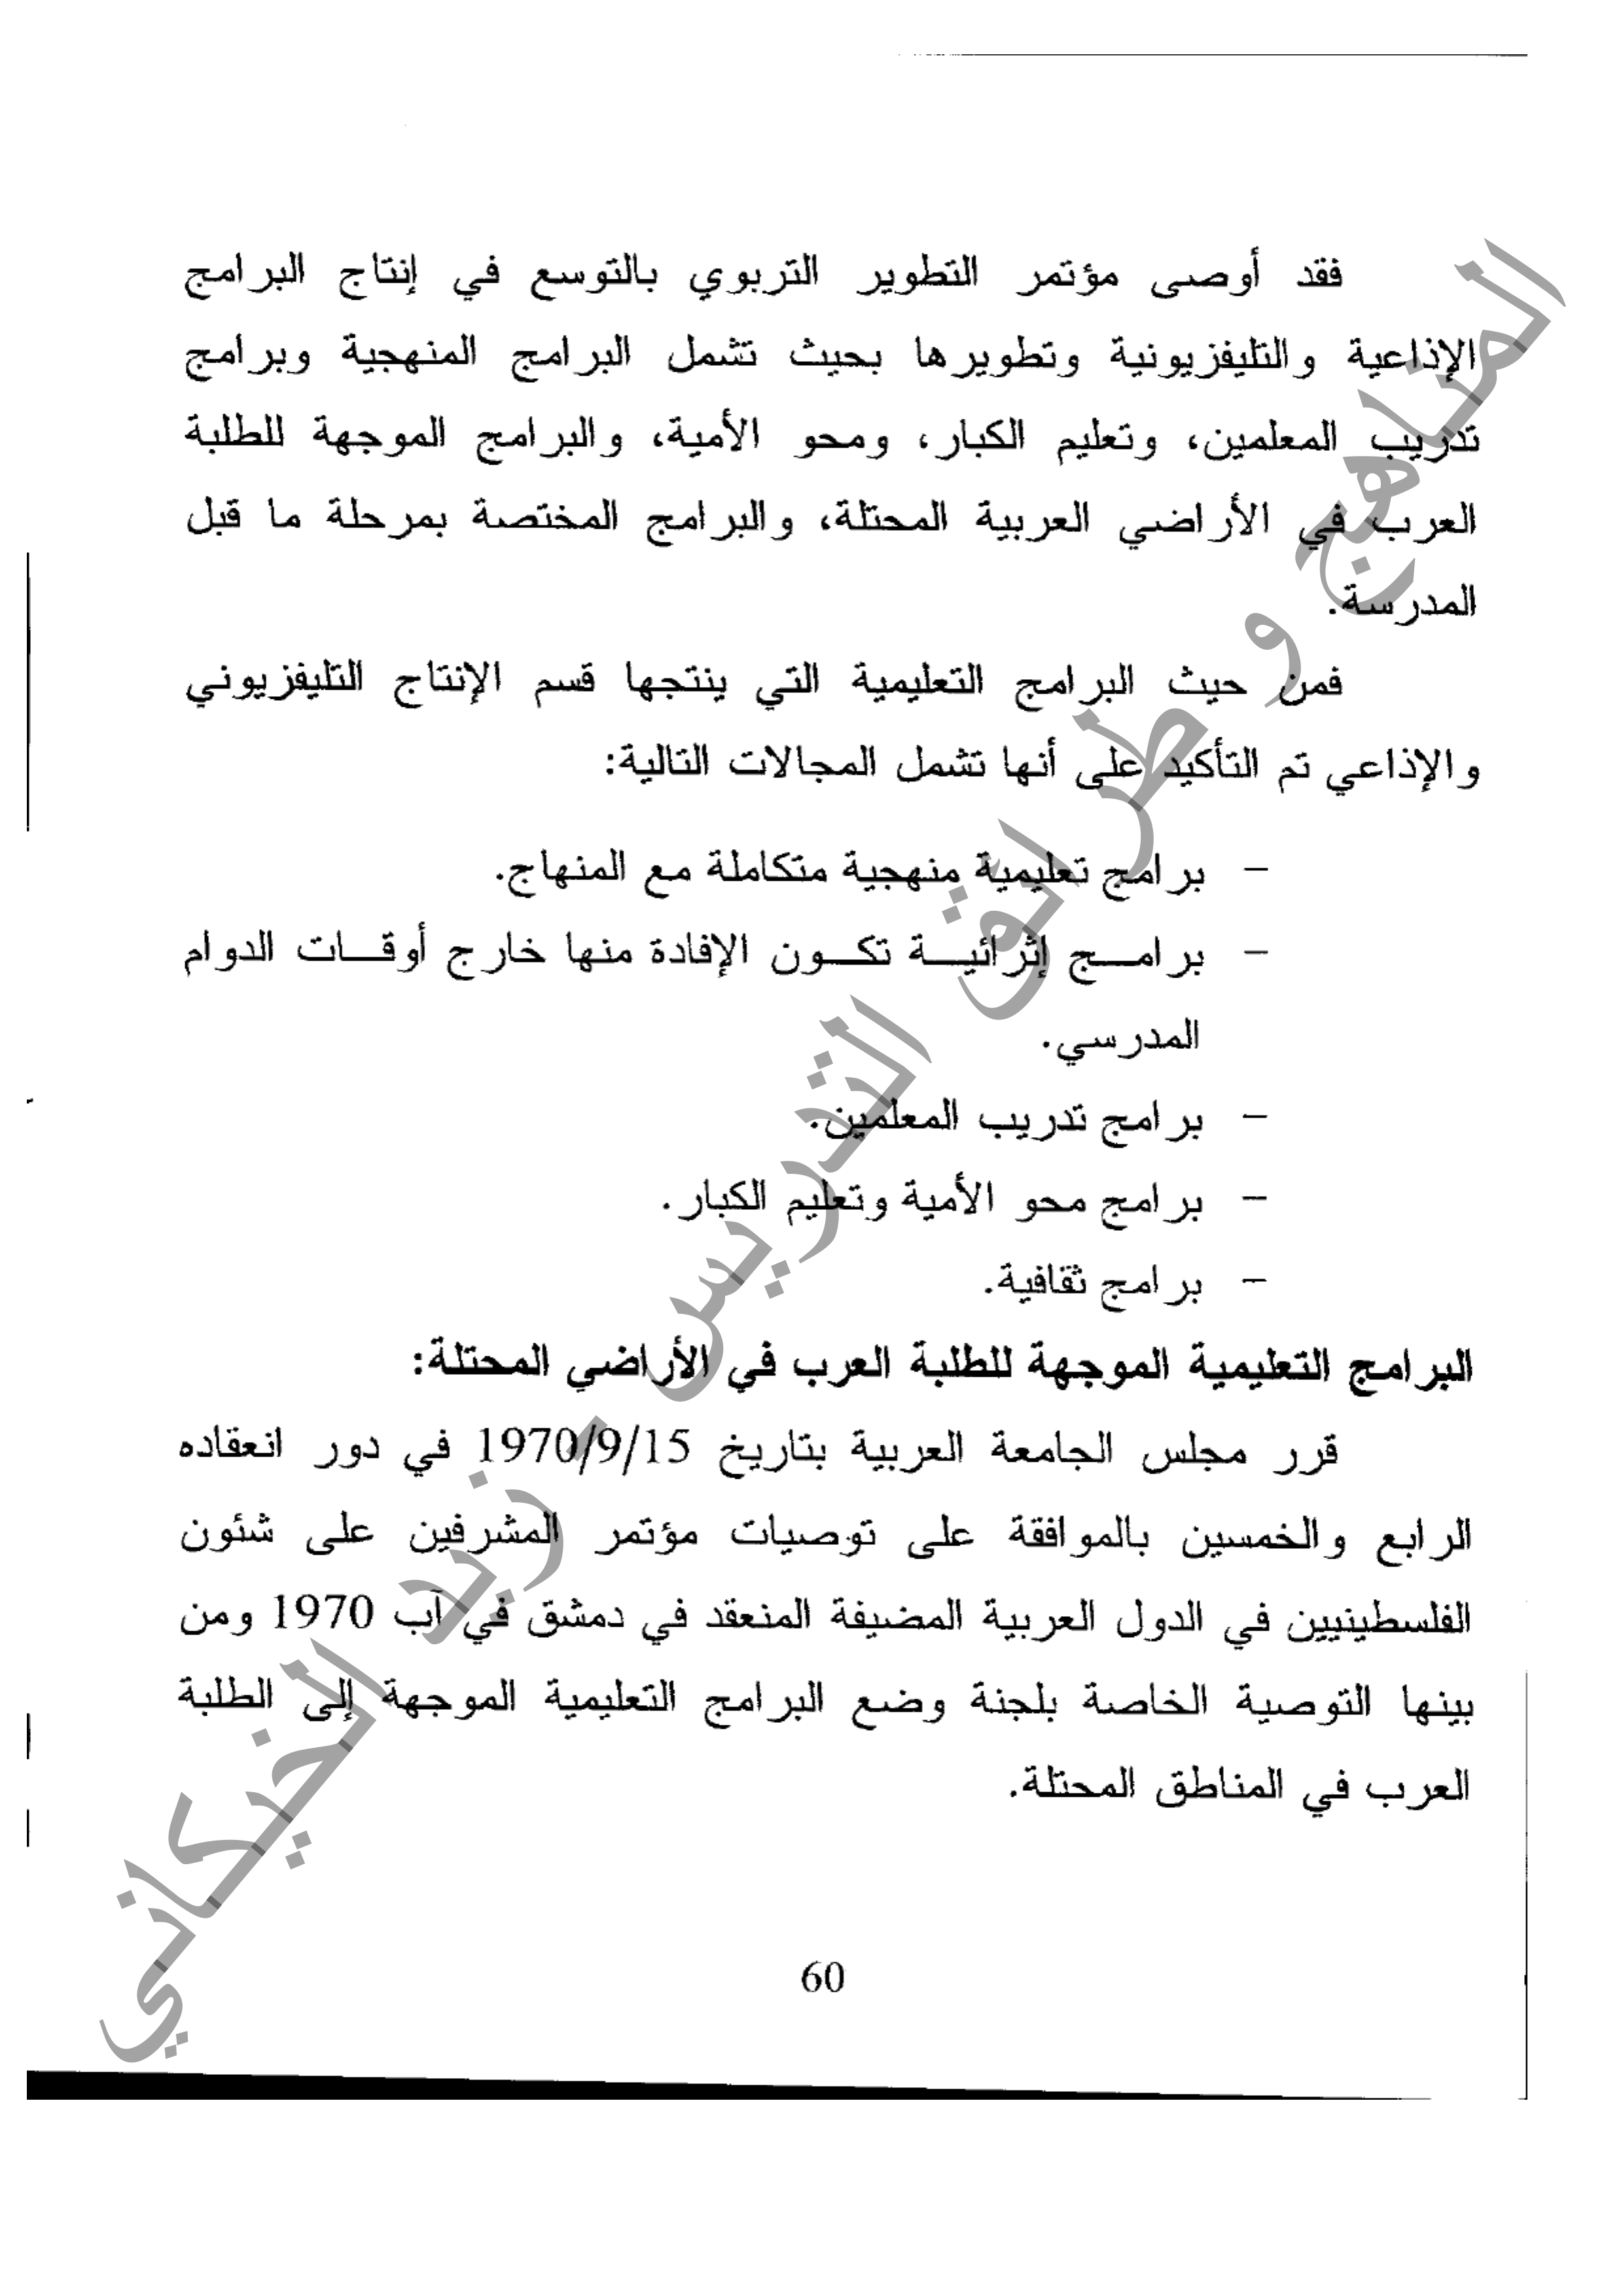 فقد أوصى مؤتمر التطوير التربوي بالتوسع في إنتاج البرامج
الإذاعية والتليفزيونية وتطويرها بحيث تشمل البرامج المنهجية وبرامج
تدريب المعلمين، وتعليم الكبار، ومحو الأمية، والبرامج الموجهة للطلبة
العرب في الأراضي العربية المحتلة، والبرامج المختصة بمرحلة ما قبل
المدرسة.
فمن حيث البرامج التعليمية التي ينتجها قسم الإنتاج التليفزيوني
والإذاعي تم التأكيد على أنها تشمل المجالات التالية:
- برامج تعليمية منهجية متكاملة مع المنهاج.
- برامج إثرائية تكون الإفادة منها خارج أوقات الدوام
المدرسي.
- برامج تدريب المعلمين.
- برامج محو الأمية وتعليم الكبار.
- برامج ثقافية.
البرامج التعليمية الموجهة للطلبة العرب في الأراضي المحتلة:
قرر مجلس الجامعة العربية بتاريخ 1970/9/15 في دور انعقاده
الرابع والخمسين بالموافقة على توصيات مؤتمر المشرفين على شئون
الفلسطينيين في الدول العربية المضيفة المنعقد في دمشق في آب 1970 ومن
بينها التوصية الخاصة بلجنة وضع البرامج التعليمية الموجهة إلى الطلبة
العرب في المناطق المحتلة.
60
المناهج و طرائق التدريس - زيد الخيكاني